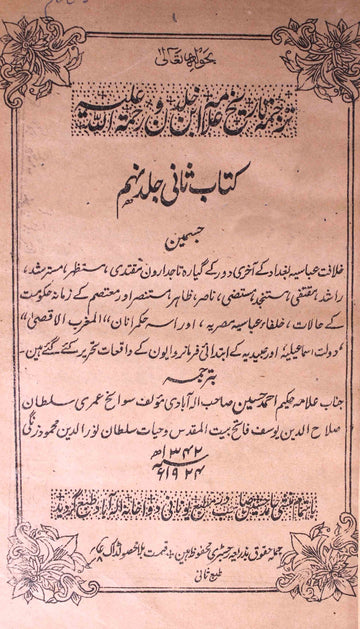 بحولہ تعالیٰ
ترجمہ تاریخ علامہ ابن خلدون رحمۃ اللہ علیہ
کتاب ثانی جلد نہم
جسمین
خلافت عباسیہ بغداد کے آخری دور کے گیارہ تاجدارون مقتدی، مستظہر، مسترشد،
راشد، مقتفی، مستنجد، مستضی، ناصر، ظاہر، مستنصر اور معتصم کے زمانہ حکومت
کے حالات، خلفاء عباسیہ مصریہ، اور اسہ حکمرانان "المغرب الاقصیٰ"
"دولت اسماعیلیہ" اور عبیدیہ کے ابتدائی فرمانروایون کے واقعات تحریر کئے گئے ہین۔
بترجمہ
جناب علامہ حکیم احمد حسین صاحب الہ آبادی مؤلف سوانح عمری سلطان
صلاح الدین یوسف فاتح بیت المقدس وحیات سلطان نور الدین محمود زنگی
۱۳۴۲ھ
۱۹۲۴ء
باہتمام منشی صاحب در مطبع یونانی دواخانہ الہ آباد طبع گردید
جملہ حقوق بذریعہ رجسٹری محفوظ ہین + قیمت بلا محصولڈاک
طبع ثانی